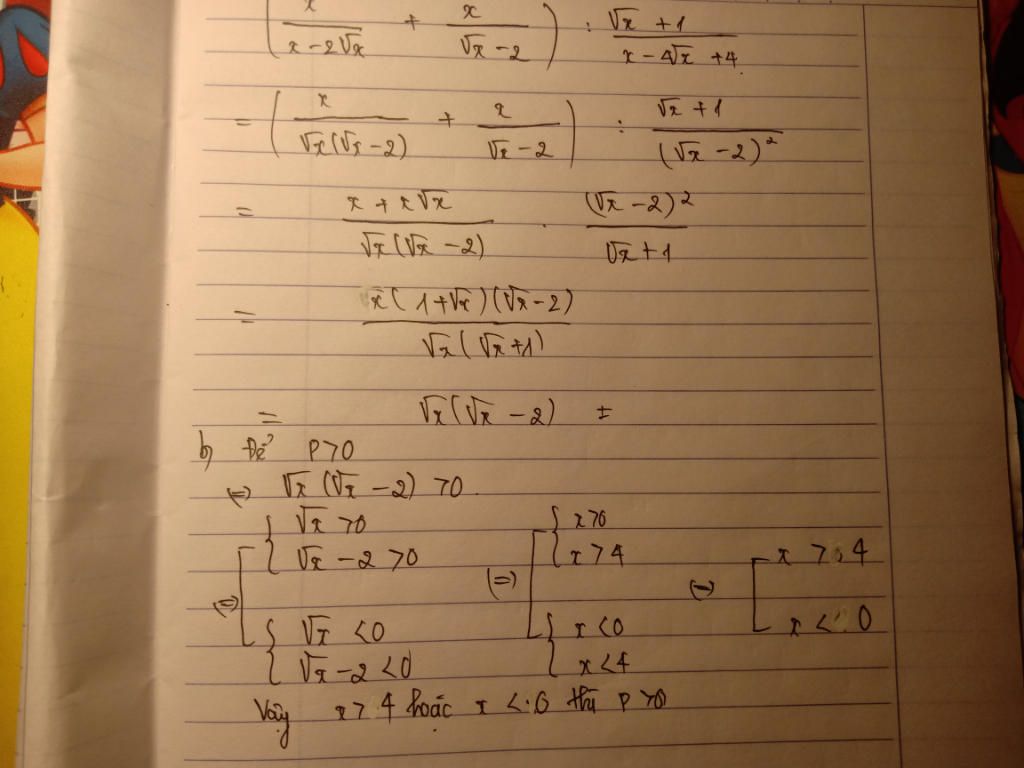 ( x / (x - 2√x) + x / (√x - 2) ) : (√x + 1) / (x - 4√x + 4)
= ( x / (√x(√x - 2)) + x / (√x - 2) ) : (√x + 1) / (√x - 2)²
= (x + x√x) / (√x(√x - 2)) . (√x - 2)² / (√x + 1)
= x(1 + √x)(√x - 2) / (√x(√x + 1))
= √x(√x - 2) =
b) Để P > 0
(=) √x(√x - 2) > 0.
(=) [ { √x > 0 ; √x - 2 > 0 } ; { √x < 0 ; √x - 2 < 0 } (=) [ { x > 0 ; x > 4 } ; { x < 0 ; x < 4 } (=) [ x > 4 ; x < 0
Vậy x > 4 hoặc x < 0 thì P > 0